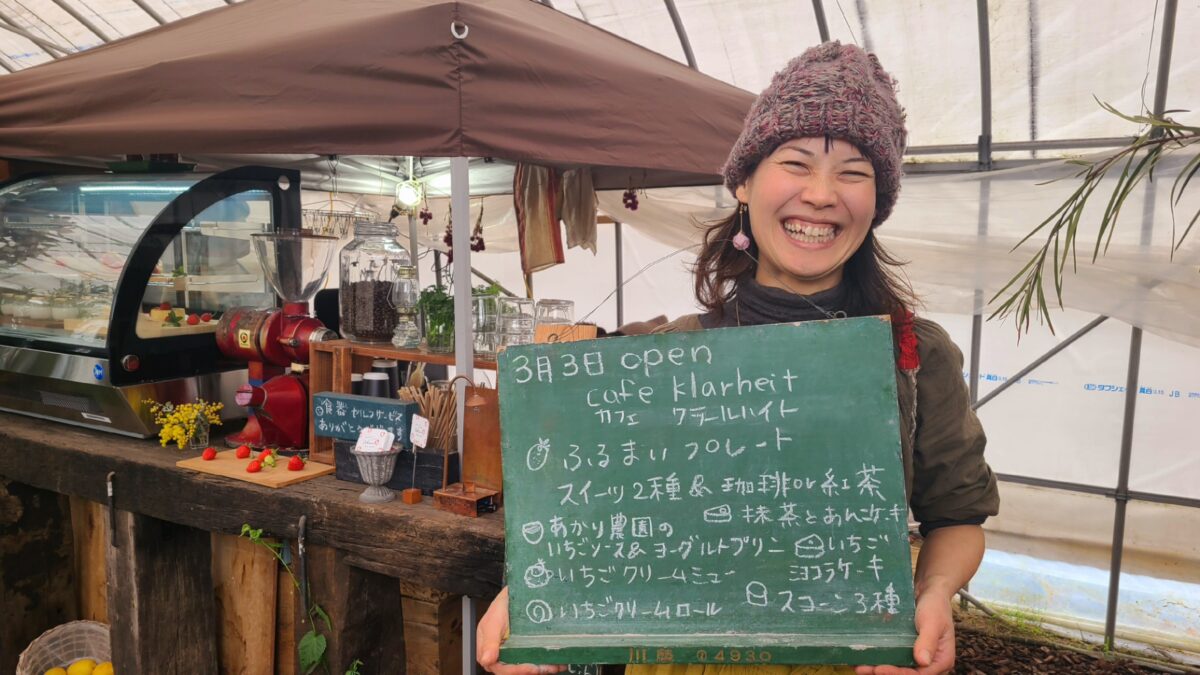 3月3日 open
cafe Klarheit
カフェ クラールハイト
ふるまい プレート
スイーツ2種& 珈琲or紅茶
あかり農園の
いちごソース&ヨーグルトプリン
いちごクリームミュー
いちごクリームロール
抹茶とあんケーキ
いちご
ショコラケーキ
スコーン3種
食器 セルフサービス
ありがとうございます
4930
JB